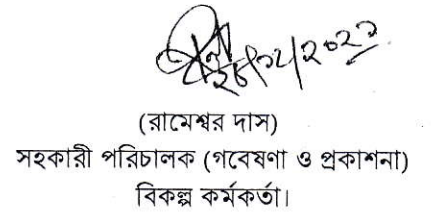 ২৮/১২/২০২১
(রামেশ্বর দাস)
সহকারী পরিচালক (গবেষণা ও প্রকাশনা)
বিকল্প কর্মকর্তা।